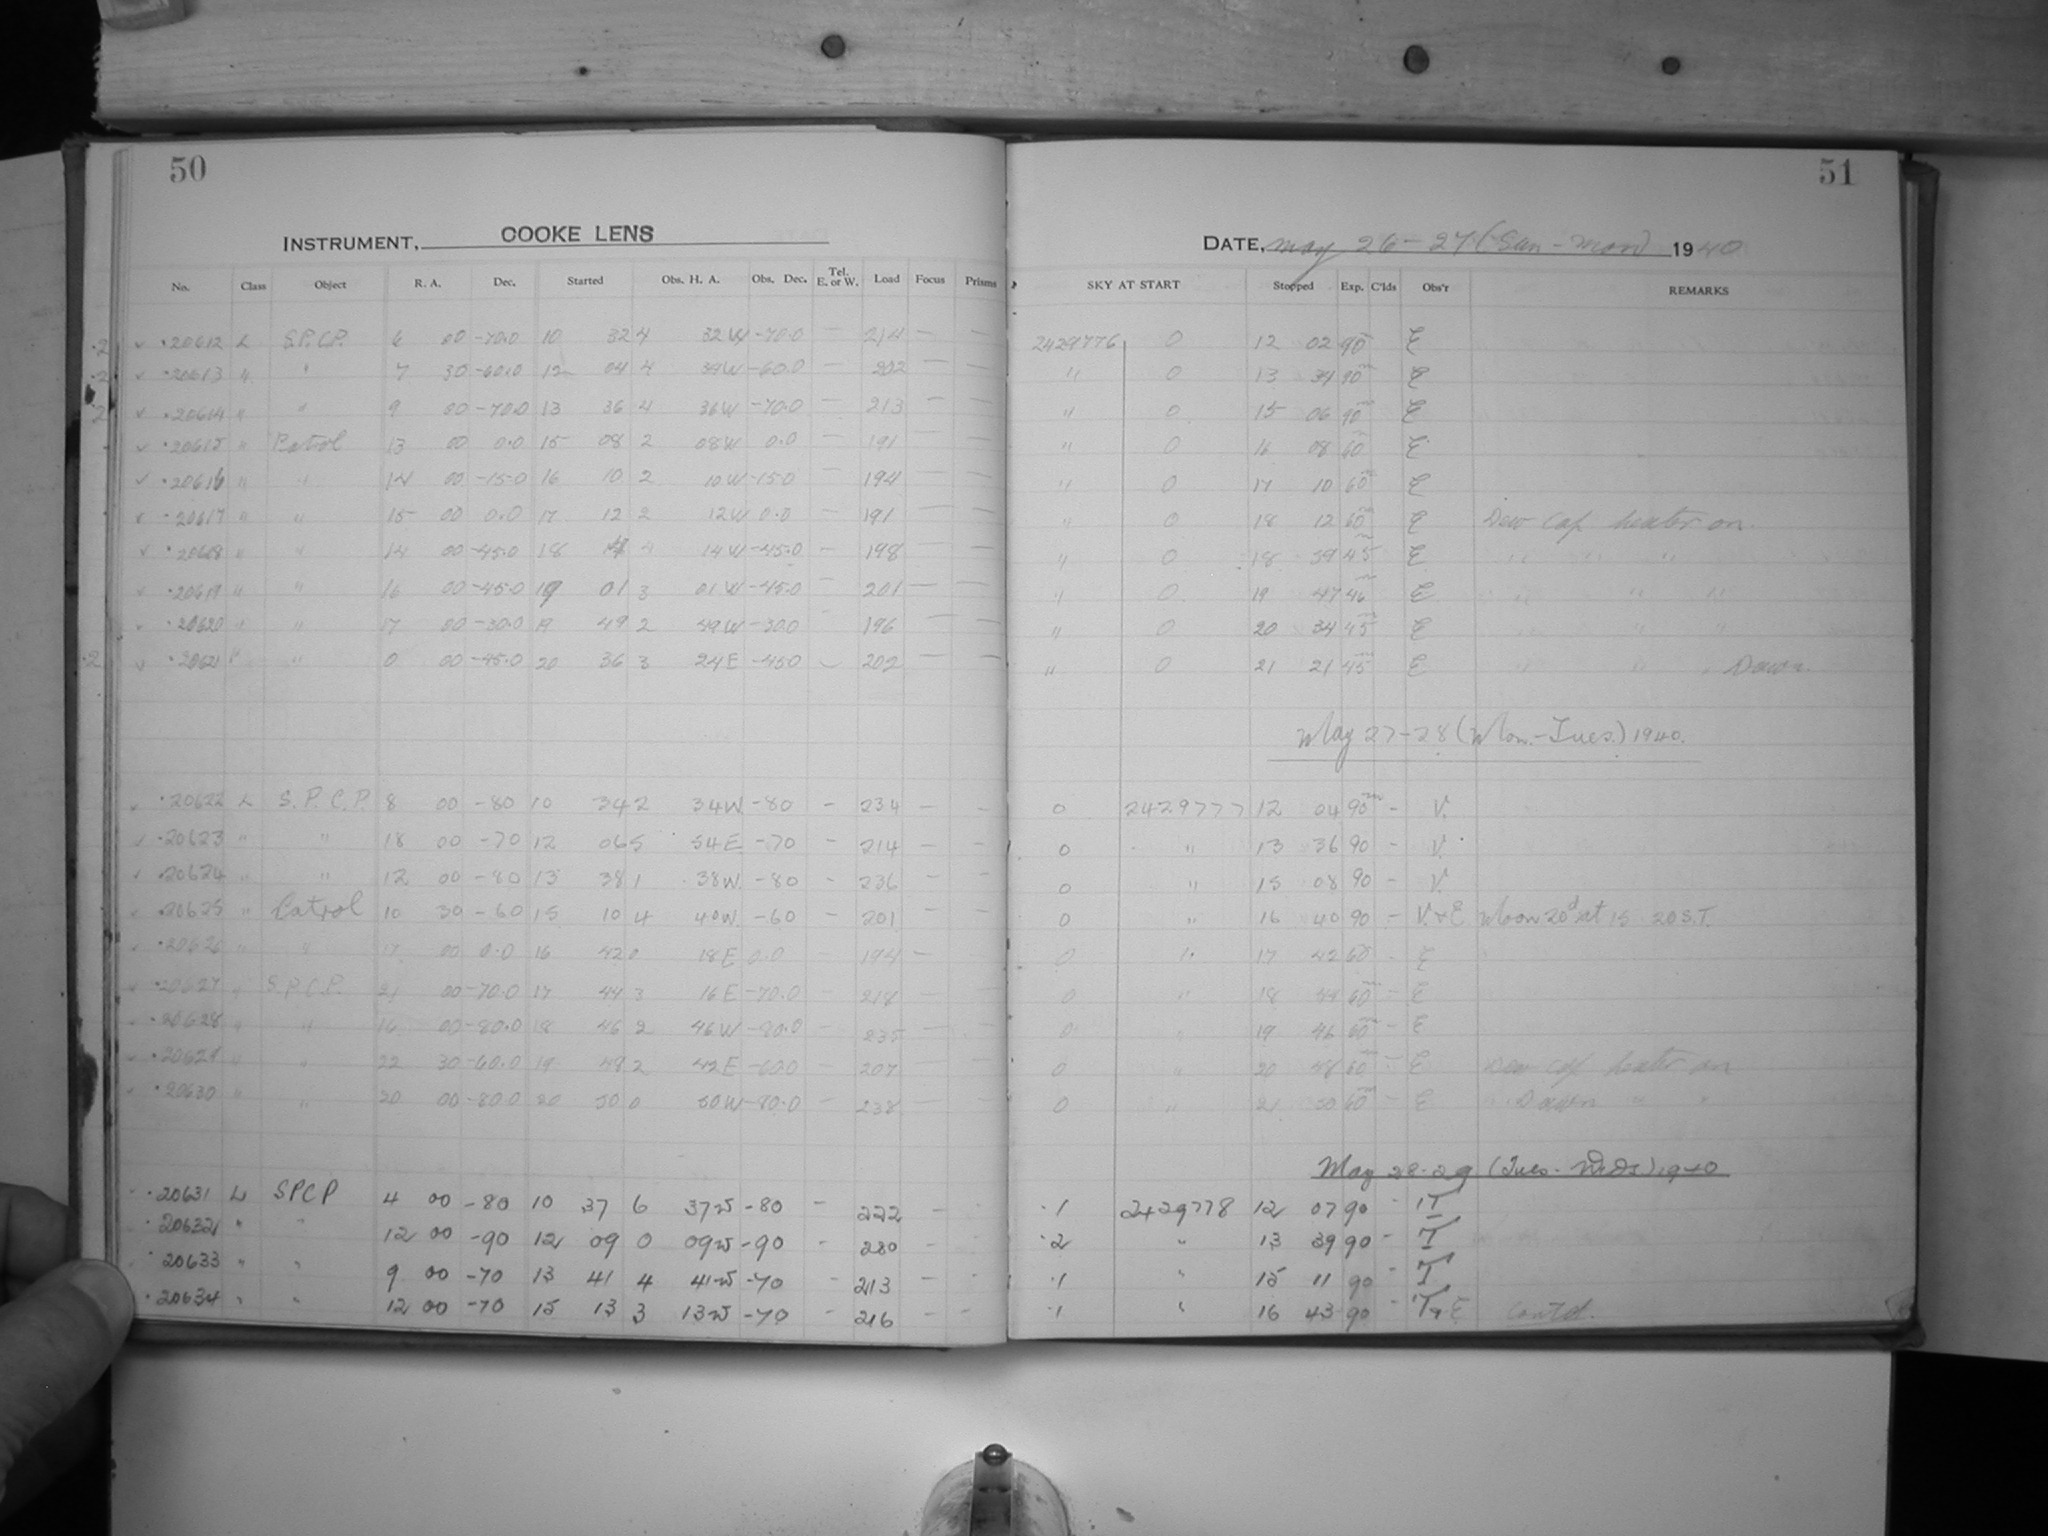 50
51
INSTRUMENT, COOKE LENS
DATE, May 26-27 (Sun-Mon) 1940
No. Class Object R. A. Dec. Started Obs. H. A. Obs. Dec. Tel. E. or W. Load Focus Prisms SKY AT START Stopped Exp. C'lds Obs'r REMARKS
·2 ✓ ·20612 L S.P.C.P. 6 00 -70.0 10 32 4 32W -70.0 — 214 — — 2429776 0 12 02 90m E
·2 ✓ ·20613 " " 7 30 -60.0 12 04 4 34W -60.0 — 202 — — " 0 13 34 90m E
·2 ✓ ·20614 " " 9 00 -70.0 13 36 4 36W -70.0 — 213 — — " 0 15 06 90m E
✓ ·20615 " Patrol 13 00 0.0 15 08 2 08W 0.0 — 191 — — " 0 16 08 60m E
✓ ·20616 " " 14 00 -15.0 16 10 2 10W -15.0 — 194 — — " 0 17 10 60m E
✓ ·20617 " " 15 00 0.0 17 12 2 12W 0.0 — 191 — — " 0 18 12 60m E Dew cap heater on.
✓ ·20618 " " 14 00 -45.0 18 14 4 14W -45.0 — 198 — — " 0 18 59 45m E " " "
✓ ·20619 " " 16 00 -45.0 19 01 3 01W -45.0 — 201 — — " 0 19 47 46m E " " "
✓ ·20620 " " 17 00 -30.0 19 49 2 49W -30.0 — 196 — — " 0 20 34 45m E " " "
·2 ✓ ·20621 " " 0 00 -45.0 20 36 3 24E -45.0 — 202 — — " 0 21 21 45m E " " " Dawn.
May 27-28 (Mon.-Tues.) 1940.
✓ ·20622 L S.P.C.P. 8 00 -80 10 34 2 34W -80 — 234 — — 0 2429777 12 04 90m — V.
✓ ·20623 " " 18 00 -70 12 06 5 54E -70 — 214 — — 0 " 13 36 90 — V.
✓ ·20624 " " 12 00 -80 13 38 1 38W. -80 — 236 — — 0 " 15 08 90 — V.
✓ ·20625 " Patrol 10 30 -60 15 10 4 40W. -60 — 201 — — 0 " 16 40 90 — V.+E Moon 20d at 15 20 S.T.
✓ ·20626 " " 17 00 0.0 16 42 0 18E 0.0 — 194 — 0 " 17 42 60 — E
✓ ·20627 " S.P.C.P. 21 00 -70.0 17 44 3 16E -70.0 — 218 — — 0 " 18 44 60m — E
✓ ·20628 " " 16 00 -80.0 18 46 2 46W -80.0 — 235 — — 0 " 19 46 60m — E
✓ ·20629 " " 22 30 -60.0 19 48 2 42E -60.0 — 207 — — 0 " 20 48 60m — E Dew cap heater on
✓ ·20630 " " 20 00 -80.0 20 50 0 50W -80.0 — 238 — — 0 " 21 50 60m — E Dawn " "
May 28-29 (Tues.-Weds.) 1940
·20631 L SPCP 4 00 -80 10 37 6 37W -80 — 222 — — ·1 2429778 12 07 90 — T
·20632 " " 12 00 -90 12 09 0 09W -90 — 280 — — ·2 " 13 39 90 — T
·20633 " " 9 00 -70 13 41 4 41W -70 — 213 — — ·1 " 15 11 90 — T
·20634 " " 12 00 -70 15 13 3 13W -70 — 216 — — ·1 " 16 43 90 — T+E Contd.